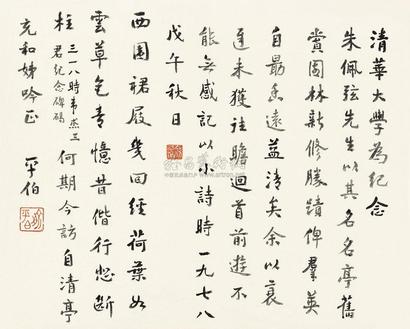 清華大學為紀念
朱佩弦先生以其名名亭舊
賞園林新修勝蹟俾羣英
自勗香遠益清矣余以衰
遲未獲往瞻迴首前遊不
能無感記以小詩時一九七八
戊午秋日
西園裙屐幾回經荷葉如
雲草色青憶昔偕行悲斷
柱 三一八時韋杰三君紀念碑碣 何期今訪自清亭
充和娣吟正 平伯